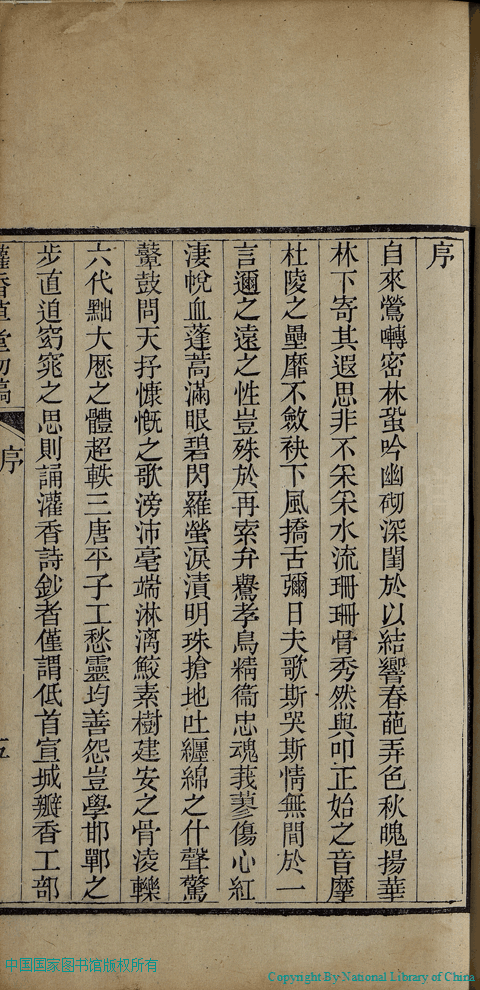 序
自來鶯囀密林蛩吟幽砌深閨於以結響春葩弄色秋魄揚華
林下寄其遐思非不采采水流珊珊骨秀然與叩正始之音摩
杜陵之壘靡不斂袂下風撟舌彌日夫歌斯哭斯情無間於一
言邇之遠之性豈殊於再索弁鸒孝鳥精衞忠魂莪蓼傷心紅
淒帨血蓬蒿滿眼碧閃羅螢淚漬明珠搶地吐纏綿之什聲驚
鼙鼓問天抒慷慨之歌滂沛毫端淋漓鮫素樹建安之骨淩轢
六代黜大厯之體超軼三唐平子工愁靈均善怨豈學邯鄲之
步直迫窈窕之思則誦灌香詩鈔者僅謂低首宣城瓣香工部
灌香草堂初稿
序
五
中国国家图书馆版权所有
Copyright By National Library of China